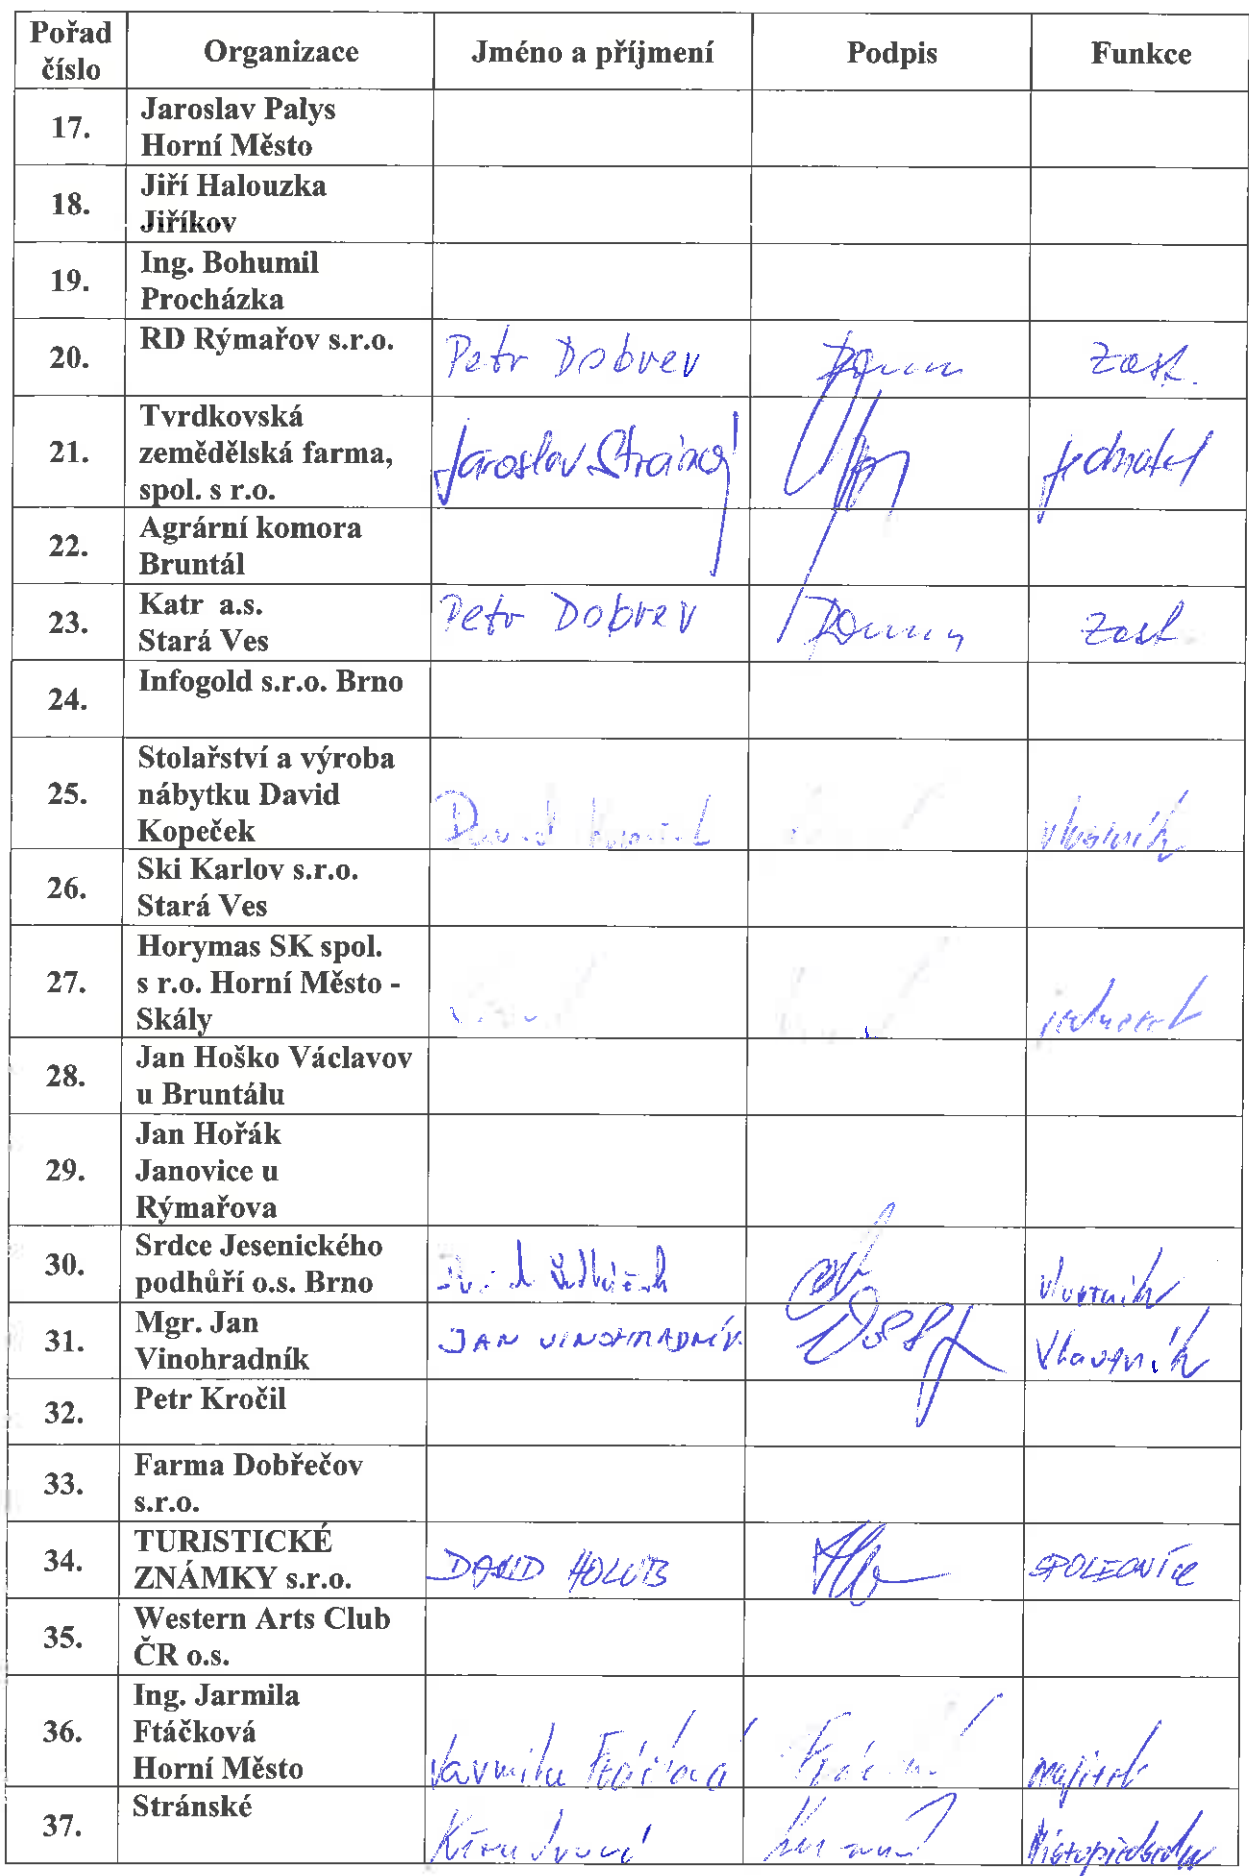 Pořad číslo Organizace Jméno a příjmení Podpis Funkce
17. Jaroslav Palys
Horní Město
18. Jiří Halouzka
Jiříkov
19. Ing. Bohumil
Procházka
20. RD Rýmařov s.r.o. Petr Dobrev zast.
21. Tvrdkovská
zemědělská farma,
spol. s r.o. Jaroslav Stránský jednatel
22. Agrární komora
Bruntál
23. Katr a.s.
Stará Ves Petr Dobrev zast
24. Infogold s.r.o. Brno
25. Stolařství a výroba
nábytku David
Kopeček David vlastník
26. Ski Karlov s.r.o.
Stará Ves
27. Horymas SK spol.
s r.o. Horní Město -
Skály jednatel
28. Jan Hoško Václavov
u Bruntálu
29. Jan Hořák
Janovice u
Rýmařova
30. Srdce Jesenického
podhůří o.s. Brno vlastník
31. Mgr. Jan
Vinohradník JAN VINOHRADNÍK vlastník
32. Petr Kročil
33. Farma Dobřečov
s.r.o.
34. TURISTICKÉ
ZNÁMKY s.r.o. DAVID HOLUB SPOLEČNÍK
35. Western Arts Club
ČR o.s.
36. Ing. Jarmila
Ftáčková
Horní Město Jarmila Ftáčková majitel
37. Stránské Místopředseda